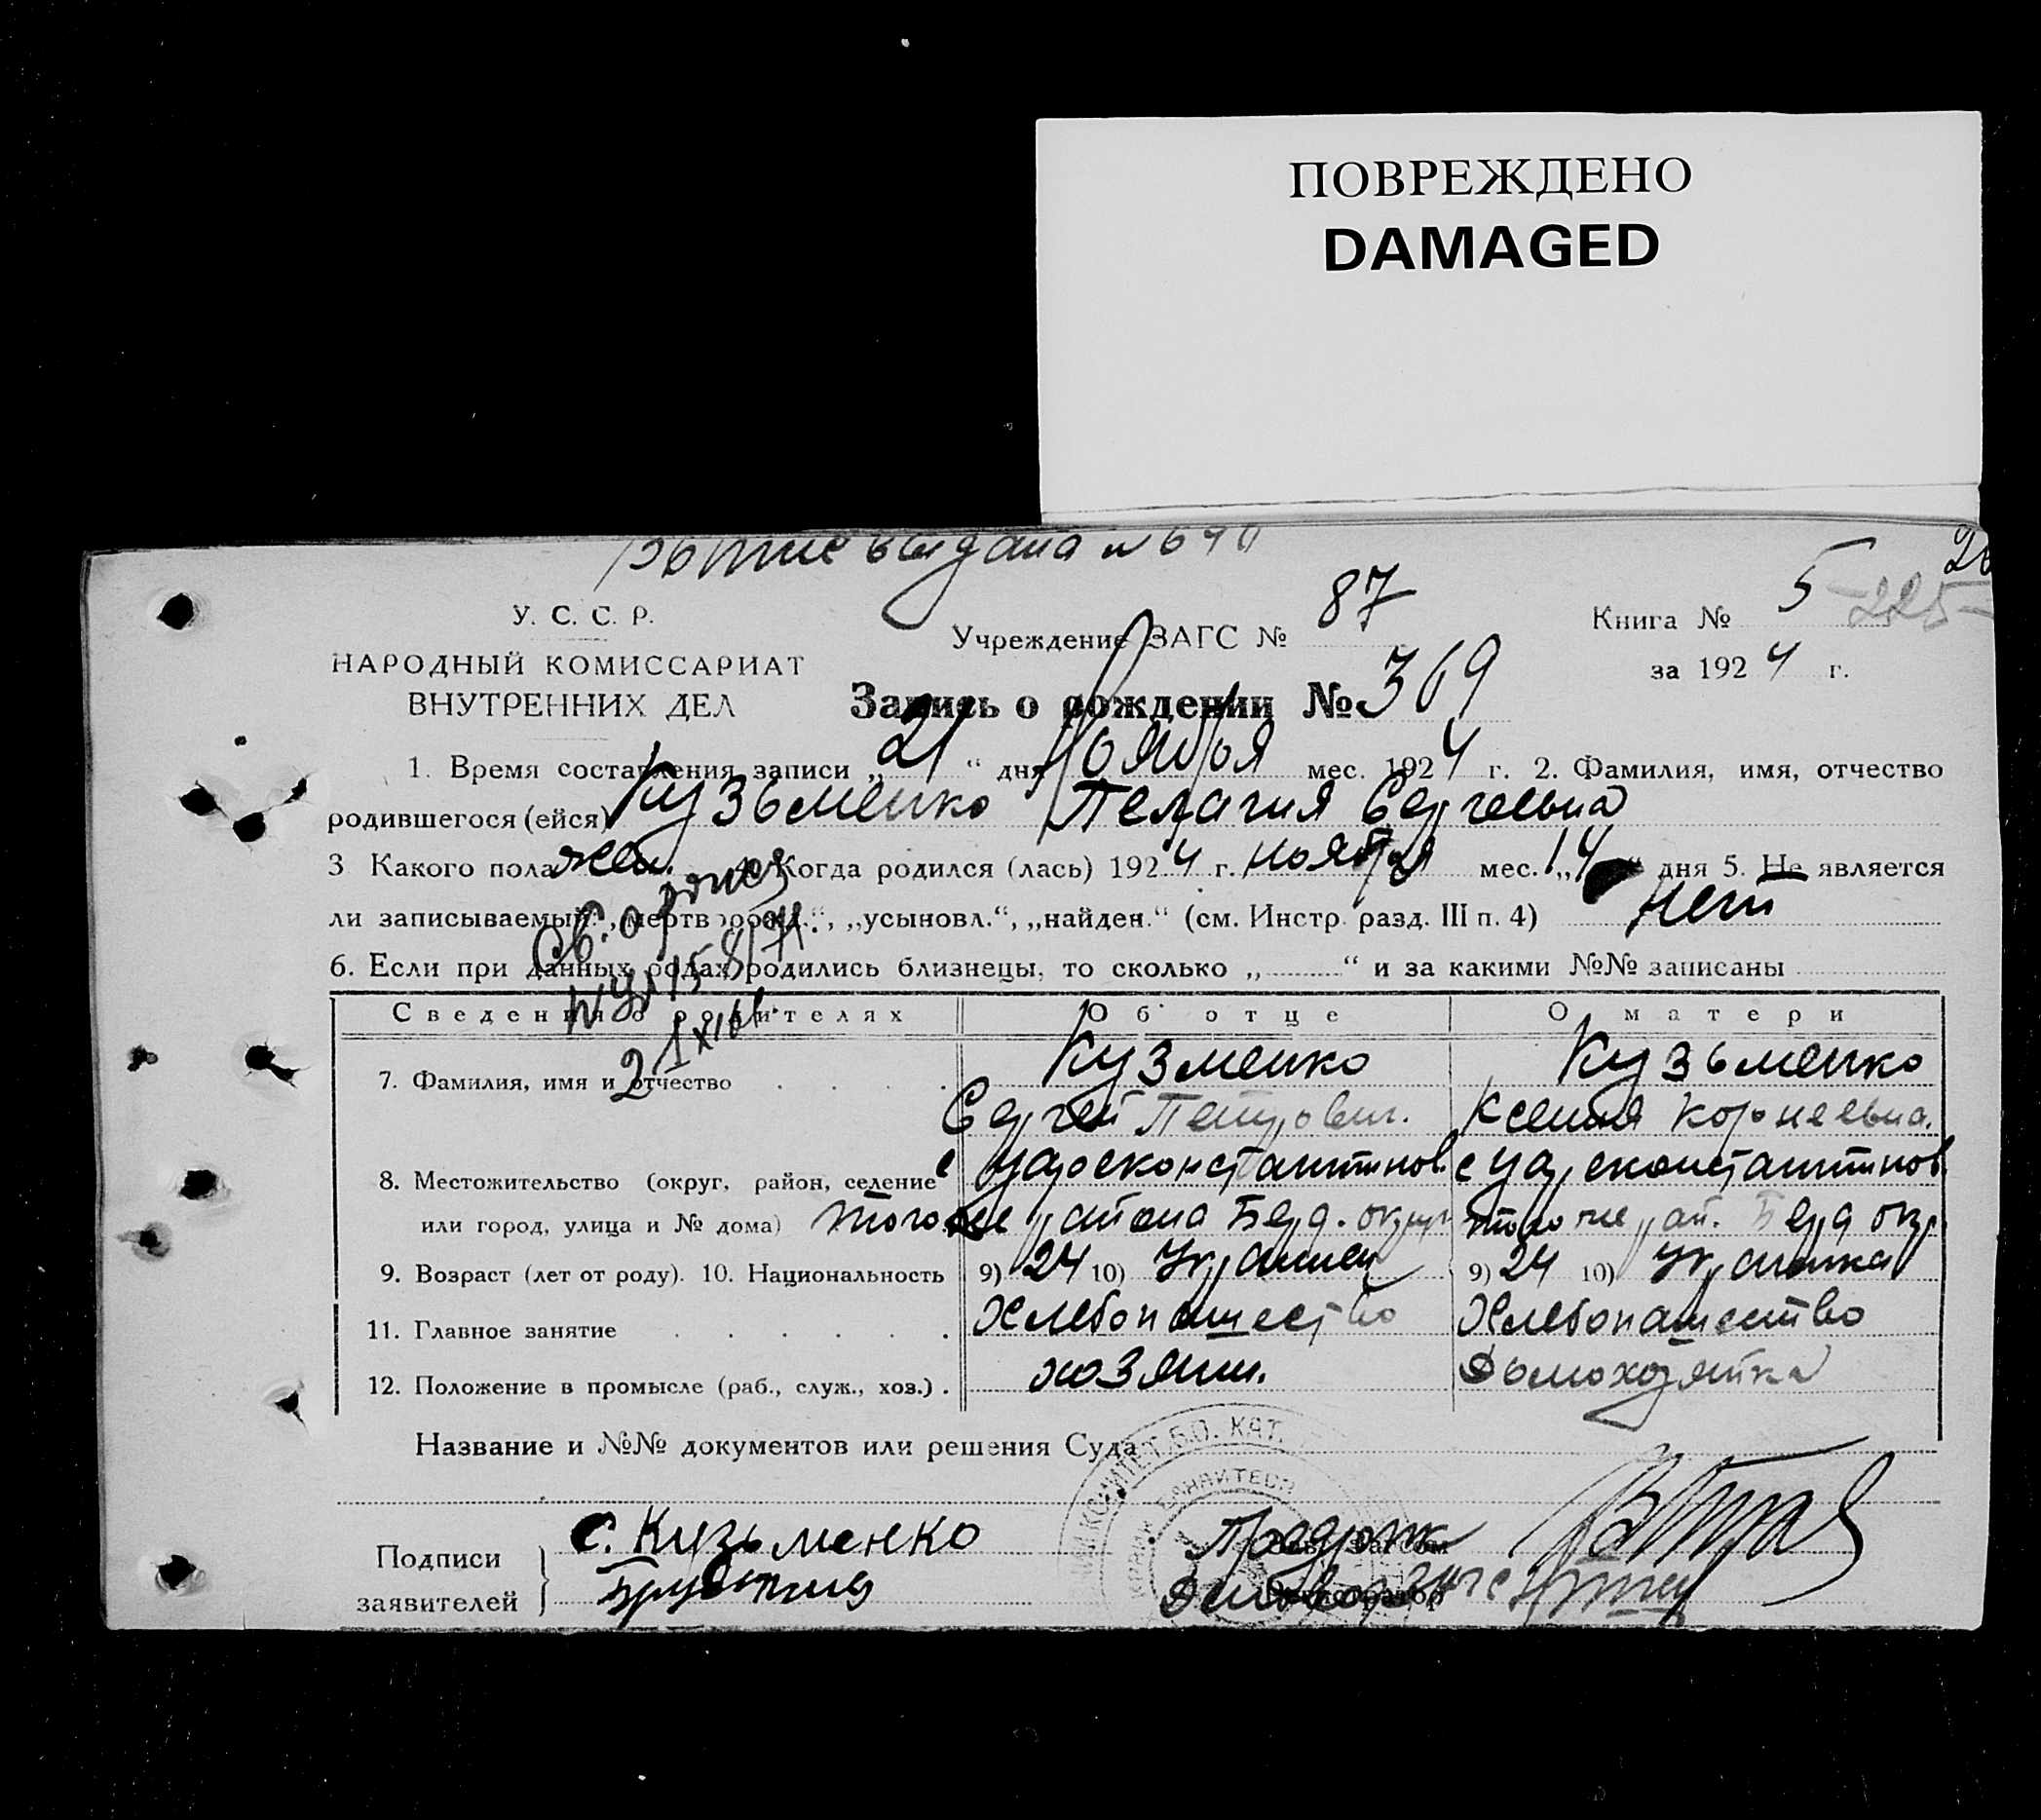 ПОВРЕЖДЕНО
DAMAGED
выдана №
У. С. С. Р.
НАРОДНЫЙ КОМИССАРИАТ
ВНУТРЕННИХ ДЕЛ
Учреждение ЗАГС № 87
Книга № 5
-225-
за 1924 г.
Запись о рождении № 369
1. Время составления записи „21“ дня Ноября мес. 1924 г. 2. Фамилия, имя, отчество
родившегося (ейся) Кузьменко Пелагия Сергеевна
3 Какого пола жен. Когда родился (лась) 1924 г. ноября мес. „14“ дня 5. Не является
ли записываемый: „мертворожд.“, „усыновл.“, „найден.“ (см. Инстр. разд. III п. 4) Нет
6. Если при данных родах родились близнецы, то сколько „“ и за какими №№ записаны
Сведения о родителях Об отце О матери
7. Фамилия, имя и отчество Кузменко Кузьменко
Сергей Петрович. Ксения Корнеевна.
8. Местожительство (округ, район, селение с Цареконстантинов. с Цареконстантинов.
или город, улица и № дома) того же района Берд. округ того же рай. Берд окр.
9. Возраст (лет от роду). 10. Национальность 9) 24 10) Украинец 9) 24 10) Украинка
11. Главное занятие Хлебопашество Хлебопашество
12. Положение в промысле (раб., служ., хоз.) хозяин. Домохозяйка
Название и №№ документов или решения Суда
Подписи
заявителей
С. Кузьменко